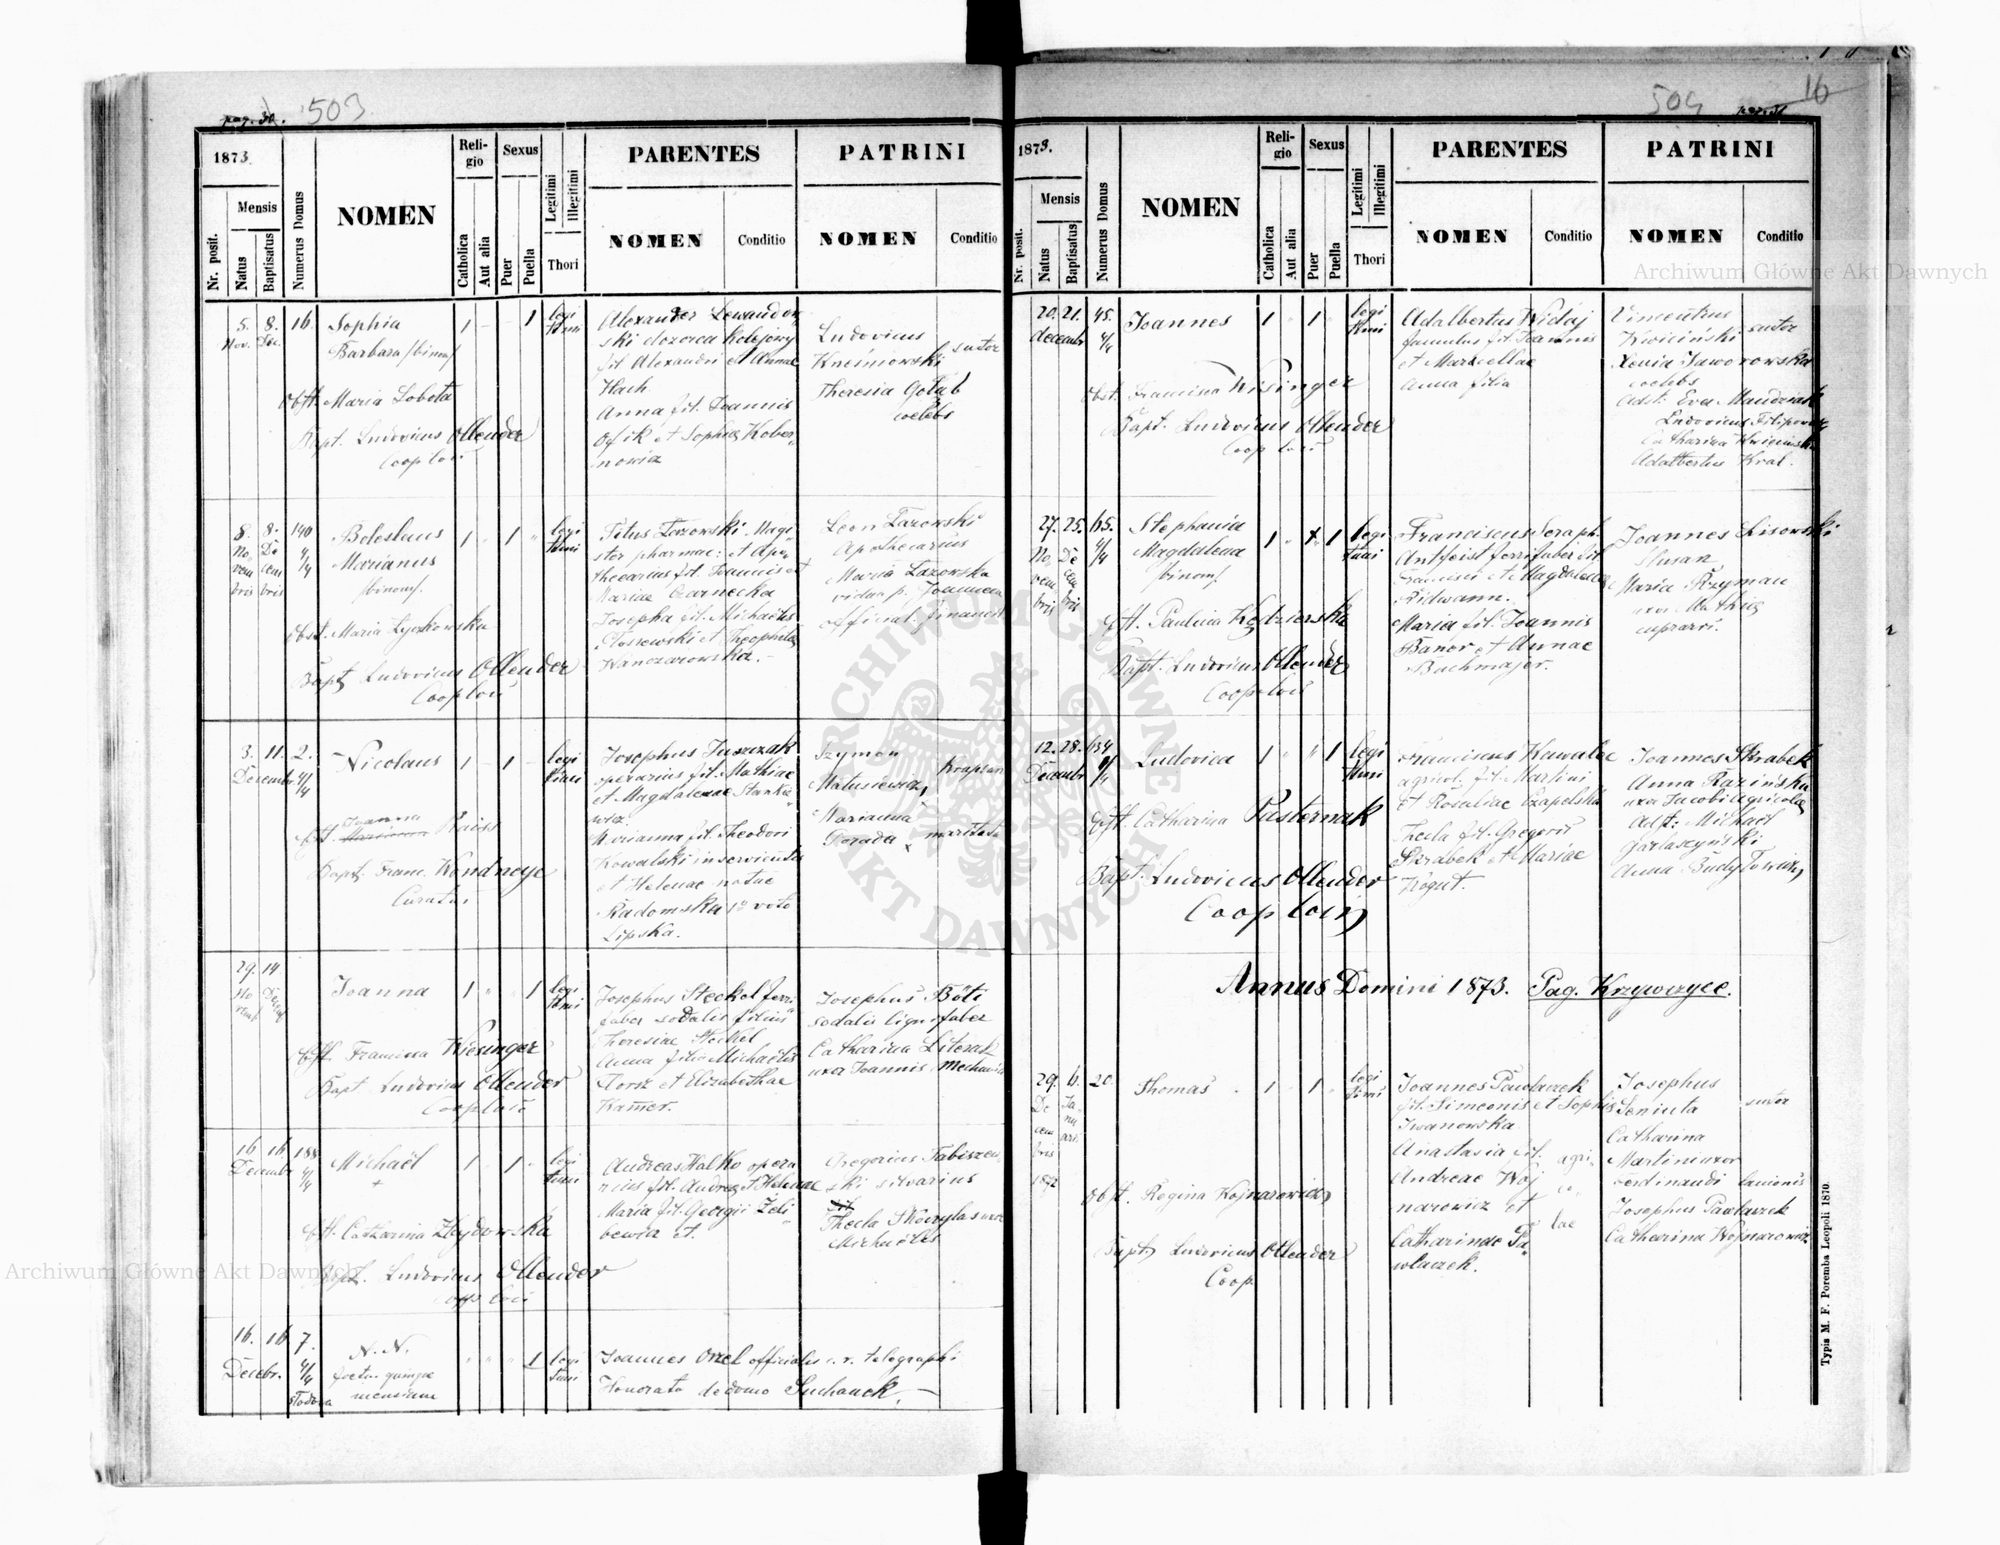 pag. 30. 503
1873.
Nr. posit.
Mensis
Natus
Baptisatus
Numerus Domus
NOMEN
Religio
Catholica
Aut alia
Sexus
Puer
Puella
Legitimi
Illegitimi
Thori
PARENTES
NOMEN
Conditio
PATRINI
NOMEN
Conditio
5. 8. 16.
Nov. Dec.
Sophia
Barbara /binom/
Obst. Maria Sobota
Bapt. Ludovicus Ollender
Cooploci
1 1 legi
timi
Alexander Lewandow
ski dozorca kolejowy
fil. Alexandri et Annae
Hach
Anna fil. Joannis
et Sophia Kober
nowicz
Ludovicus
sutor
Theresia Gołąb
coelebs
8. 8. 140
No De 4/4
vem cem
bris bris
Boleslaus
Marianus
/binom/
Obst. Maria Łyszkowska
Bapt. Ludovicus Ollender
Cooploci
1 1 legi
timi
Titus Łazowski Magi
ster pharmac: et Apo
thecarius fil. Joannis et
Mariae Czarnecka
Josepha fil. Michaelis
et Theophila
Wanczarowska.
Leon Łazowski
Apothecarius
Maria Łazowska
vidua p. Joannem
official. finansow
3. 11. 2.
Decembr 4/4
Nicolaus
Obst. Joanna Reiss
Bapt. Franc. Kondneye
Curatus
1 1 legi
timi
Josephus Juszczak
operarius fil. Mathiae
et Magdalenae Stankie
wicz.
Marianna fil. Theodori
Kowalski inservientis
et Helenae natae
Radomska 1º voto
Lipska.
Szymon
Matusiewicz,
Marianna
29. 14
Joanna
Obst. Francisca Kiesinger
Bapt Ludovicus Ollender
Cooploci
1 1 legi
timi
Josephus Steckel ferri
faber sodalis filius
Theresiae Steckel
Anna filia Michaelis
Torsz et Elizabethae
Kamer.
Josephus Böti
sodalis lignifaber
Catharina Literak
uxor Joannis Mechanici
16 16 188
Decembr 4/4
Michaël
+
Obst. Catharina Zbydowska
Bapt. Ludovicus Ollender
loci
1 1 legi
timi
Andreas Halko opera
rius fil. Andrea et Helenae
Maria fil. Georgii Żeli
bewicz et.
Gregorius Fabiszew
ski silvarius
Thecla Skoczylas uxor
Michaëlis
16. 16 7.
Decebr. 4/4
N. N.
foetus quinque
mensium
1 legi
timi
Joannes Orzel officialis c. r. telegraphi
Honorata de domo Suchanek,
504 pag. 31 16
1873.
Nr. posit.
Mensis
Natus
Baptisatus
Numerus Domus
NOMEN
Religio
Catholica
Aut alia
Sexus
Puer
Puella
Legitimi
Illegitimi
Thori
PARENTES
NOMEN
Conditio
PATRINI
NOMEN
Conditio
20. 21. 45.
decembr 4/4
Joannes
Obst. Francisca Kisinger
Bapt. Ludovicus Ollender
Coop loci
1 1 legi
timi
Adalbertus Widaj
famulus fil. Joannis
et Marcellae
Anna filia
Vincentius
Kwiciński sutor
Xenia Jaworowska
coelebs
Adst: Eva Maudziak
Ludovicus Filipowicz
Catharina Kwicinska
Adalbertus Kral.
27. 25. 65.
No De 4/4
vem cem
bris bris
Stephania
Magdalena
/binom/
Obst. Paulina Kędzierska
Bapt. Ludovicus Ollender
Cooploci
1 1 legi
timi
Franciscus Seraph.
ferrifaber fil
Francisci et Magdalena
Ridwann.
Maria fil. Joannis
Baner et Annae
Bachmajer.
Joannes Lisowski
slusarz
Maria Rzyman
uxor Mathia
cuprarii.
12. 28. 634
Decembr
Ludovica
Obst. Catharina Pasternak
Bapt. Ludovicus Ollender
Cooploci
1 1 legi
timi
Franciscus Kawalec
agricol. fil. Martini
et Rosaliae Czapelska
Thecla fil. Gregorii
Skrabek et Mariae
Kogut.
Joannes Skrabek
Anna Razińska
uxor Jacobi Agricola
Adst: Michael
Garlaszyński
Anna Budyłowicz
Annus Domini 1873. Pag. Krzywczyce.
29. 6. 20.
De Ja
cem nu
bris arii
1872
Thomas
Obst. Regina Kojnarowicz
Bapt Ludovicus Ollender
Coop.
1 1 legi
timi
Joannes Pawlaczek
fil. Simeonis et Sophia
Iwanowska.
Anastasia fil. agri
Andreae Woj co
narowicz et lae
Catharinae Pa
wlaczek.
Josephus
Seniuta sutor
Catharina
Martini uxor
Ferdinandi lanionis
Josephus Pawlaczek
Catharina Wojnarowicz
Typis M. F. Poremba Leopoli 1870.
Archiwum Główne Akt Dawnych
Archiwum Główne Akt Dawnych
ARCHIWUM GŁÓWNE AKT DAWNYCH